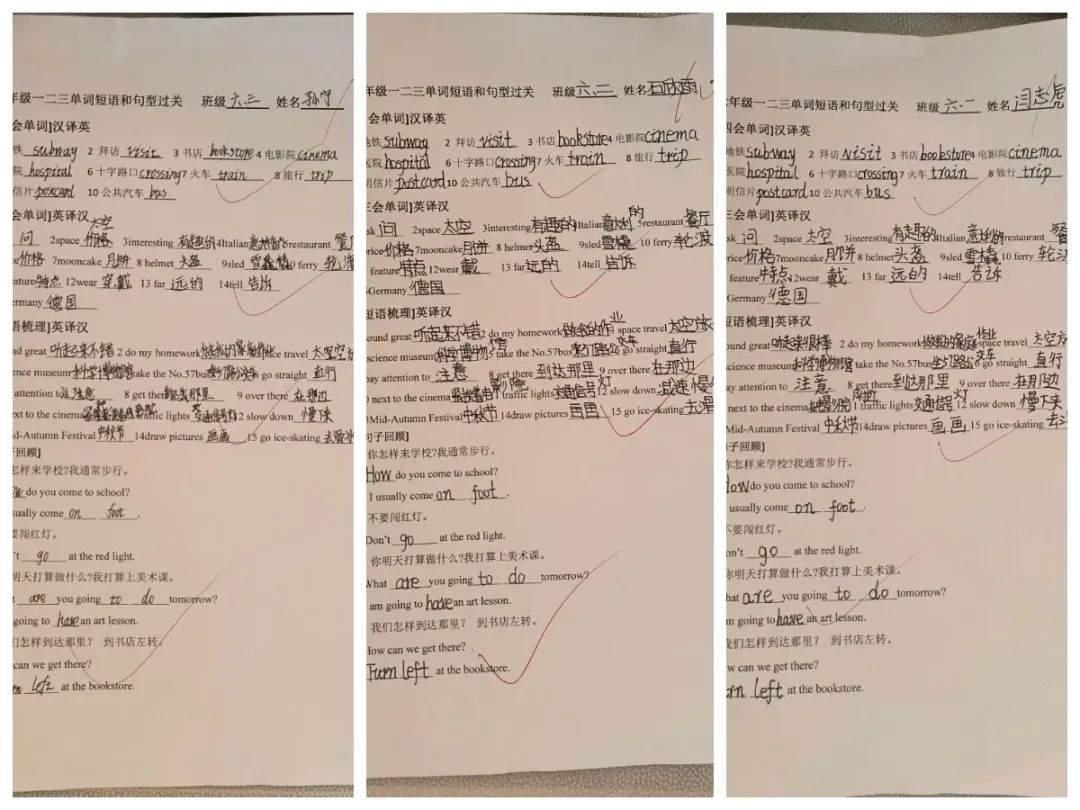 年级一二三单词短语和句型过关 班级六.三 姓名孙宁
会单词]汉译英
铁 subway 2 拜访 visit 3 书店 bookstore 4 电影院 cinema
医院 hospital 6 十字路口 crossing 7 火车 train 8 旅行 trip
信片 postcard 10 公共汽车 bus
会单词]英译汉
问 2space 太空 价格 3interesting 有趣的 4Italian 意大利的 5restaurant 餐厅
rice 价格 7mooncake 月饼 8 helmet 头盔 9sled 雪橇 10 ferry 轮渡
feature 特点 12wear 穿戴 13 far 远的 14tell 告诉
Germany 德国
语梳理]英译汉
und great 听起来不错 2 do my homework 做我的家庭作业 space travel 太空
science museum 科学博物馆 take the No.57bus go straight 直行
ay attention to 注意 8 get there 9 over there 在那边
ext to the cinema traffic lights 交通信号灯 12 slow down 慢下来
Mid-Autumn Festival 中秋节 14draw pictures 画画 15 go ice-skating 去滑冰
子回顾]
怎样来学校?我通常步行。
ow do you come to school?
sually come on foot.
要闯红灯。
't go at the red light.
明天打算做什么?我打算上美术课。
t are you going to do tomorrow?
going to have an art lesson.
们怎样到达那里? 到书店左转。
can we get there?
rn left at the bookstore.
年级一二三单词短语和句型过关 班级六.二 姓名石欣雨
会单词]汉译英
地铁 subway 2 拜访 visit 3 书店 bookstore 4 电影院 cinema
医院 hospital 6 十字路口 crossing 7 火车 train 8 旅行 trip
明信片 postcard 10 公共汽车 bus
三会单词]英译汉
sk 问 2space 太空 3interesting 有趣的 4Italian 意大利的 5restaurant 餐厅
rice 价格 7mooncake 月饼 8 helmet 头盔 9sled 雪橇 10 ferry 轮渡
feature 特点 12wear 戴 13 far 远的 14tell 告诉
Germany 德国
短语梳理]英译汉
ound great 听起来不错 2 do my homework 做我的作业 space travel 太空旅
science museum 科学博物馆 5 take the No.57bus 乘57路公交车 go straight 直行
ay attention to 注意 8 get there 到达那里 9 over there 在那边
0 next to the cinema 紧挨着电影院 traffic lights 交通信号灯 12 slow down 减速慢
3Mid-Autumn Festival 中秋节 14draw pictures 画画 15 go ice-skating 去滑
句子回顾]
你怎样来学校?我通常步行。
How do you come to school?
I usually come on foot.
不要闯红灯。
Don't go at the red light.
你明天打算做什么?我打算上美术课。
What are you going to do tomorrow?
am going to have an art lesson.
我们怎样到达那里? 到书店左转。
How can we get there?
Turn left at the bookstore.
年级一二三单词短语和句型过关 班级六.二 姓名闫志虎
四会单词]汉译英
地铁 subway 2 拜访 visit 3 书店 bookstore 4 电影院 cinema
医院 hospital 6 十字路口 crossing 7 火车 train 8 旅行 trip
明信片 postcard 10 公共汽车 bus
三会单词]英译汉
sk 问 2space 太空 3interesting 有趣的 4Italian 意大利的 5restaurant 餐
rice 价格 7mooncake 月饼 8 helmet 头盔 9sled 雪橇 10 ferry 轮渡
feature 特点 12wear 戴 13 far 远的 14tell 告诉
Germany 德国
短语梳理]英译汉
ound great 听起来很棒 2 do my homework 做我的家庭作业 space travel 太空
science museum 科学博物馆 take the No.57bus 坐57路公交车 go straight 直行
ay attention to 注意. 8 get there 到达那里 9 over there 在那边
next to the cinema traffic lights 交通信号灯 12 slow down 慢下来
Mid-Autumn Festival 中秋节 14draw pictures 画画 15 go ice-skating 去
句子回顾]
你怎样来学校?我通常步行。
How do you come to school?
usually come on foot.
不要闯红灯。
on't go at the red light.
你明天打算做什么?我打算上美术课。
hat are you going to do tomorrow?
m going to have an art lesson.
我们怎样到达那里? 到书店左转。
ow can we get there?
rn left at the bookstore.